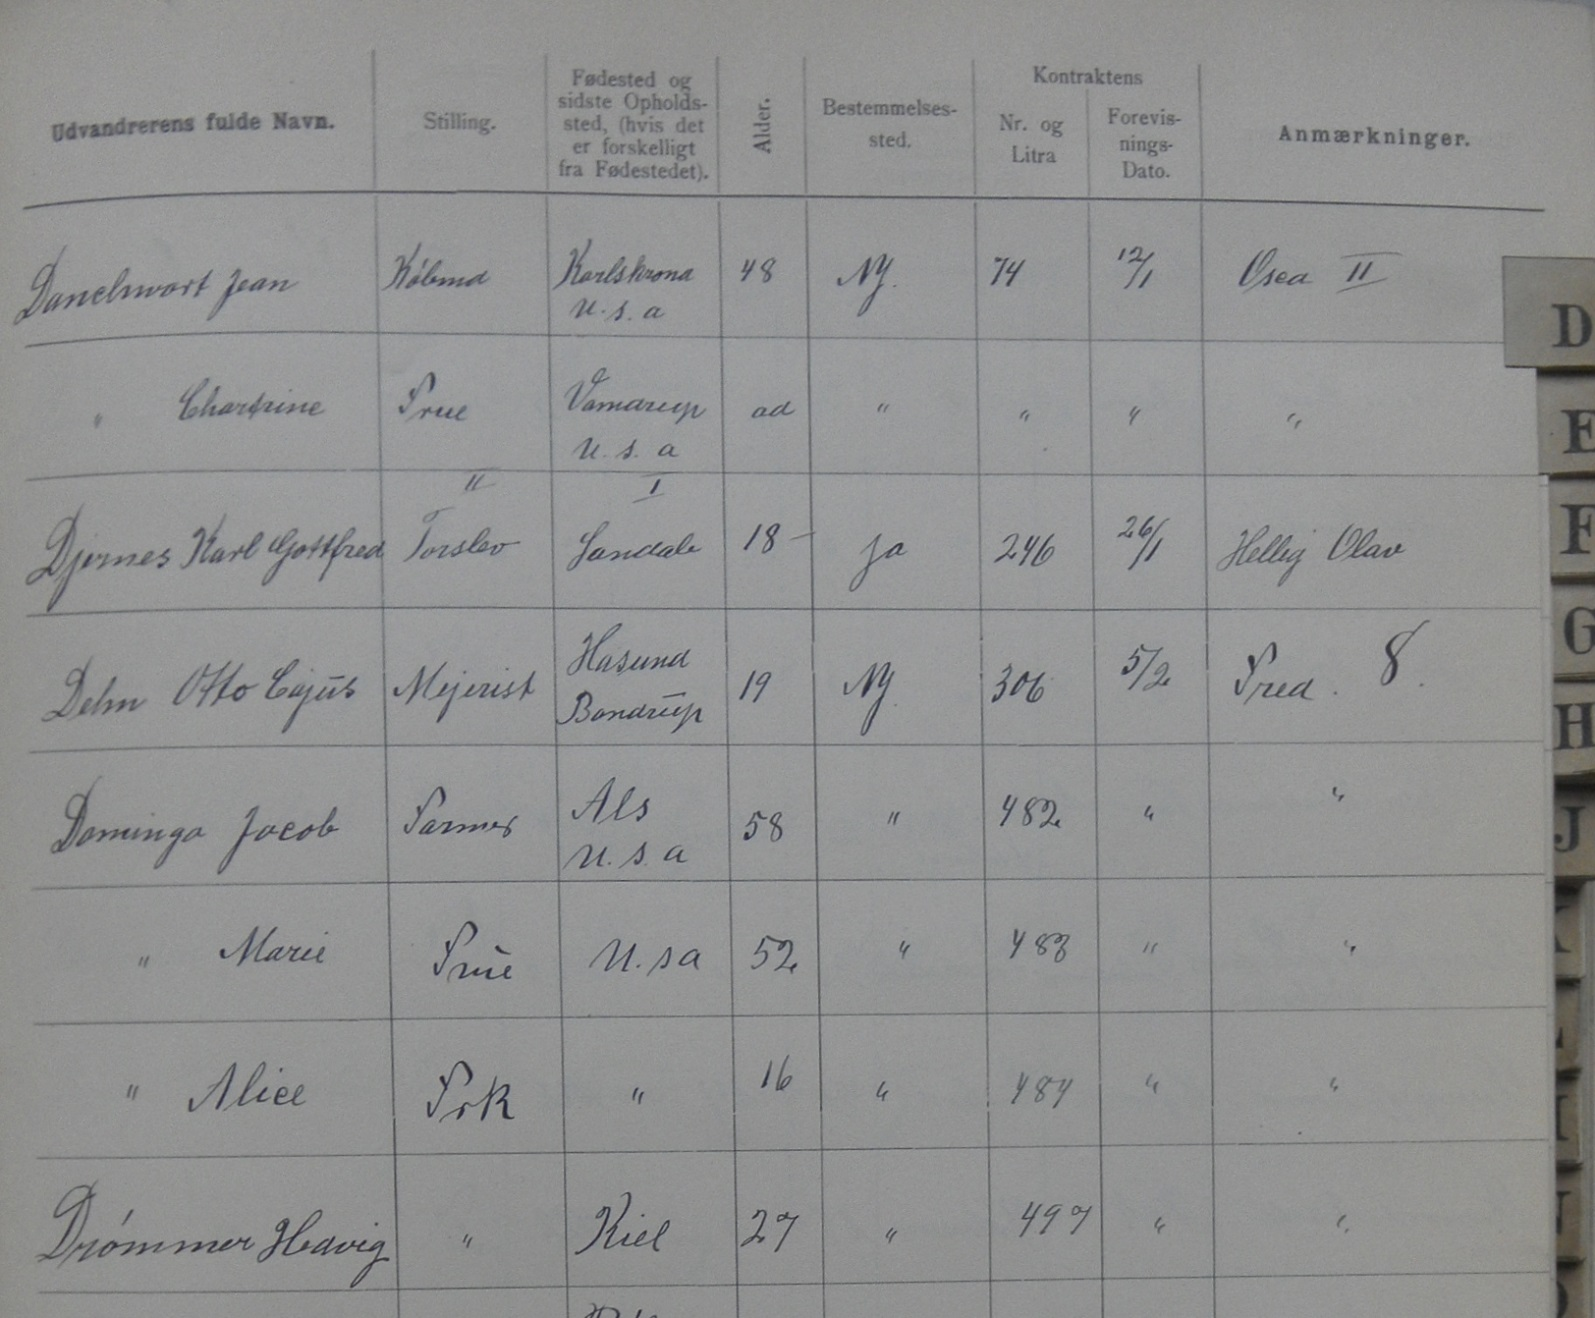 Udvandrerens fulde Navn.
Stilling.
Fødested og
sidste Opholds-
sted, (hvis det
er forskelligt
fra Fødestedet).
Alder.
Bestemmelses-
sted.
Kontraktens
Nr. og
Litra
Forevis-
nings-
Dato.
Anmærkninger.
Danchwart Jean Købmd Karlskrona 48 NY. 74 12/1 Osca II
U. s. a
" Chartrine Frue Vamdrup ad " " " "
U. s. a
II I
Djernes Karl Gottfred Torslev Sandale 18 - Ja 246 26/1 Hellig Olav
Dehn Otto Cajus Mejerist Hasund 19 NY 306 5/2 Fred. 8.
Bondrup
Domingo Jacob Farmer Als 58 " 482 " "
U. s. a
" Marie Frue U. s a 52 " 483 " "
" Alice Frk " 16 " 484 " "
Drømmer Hedvig " Kiel 27 " 497 " "
D
E
F
G
H
J